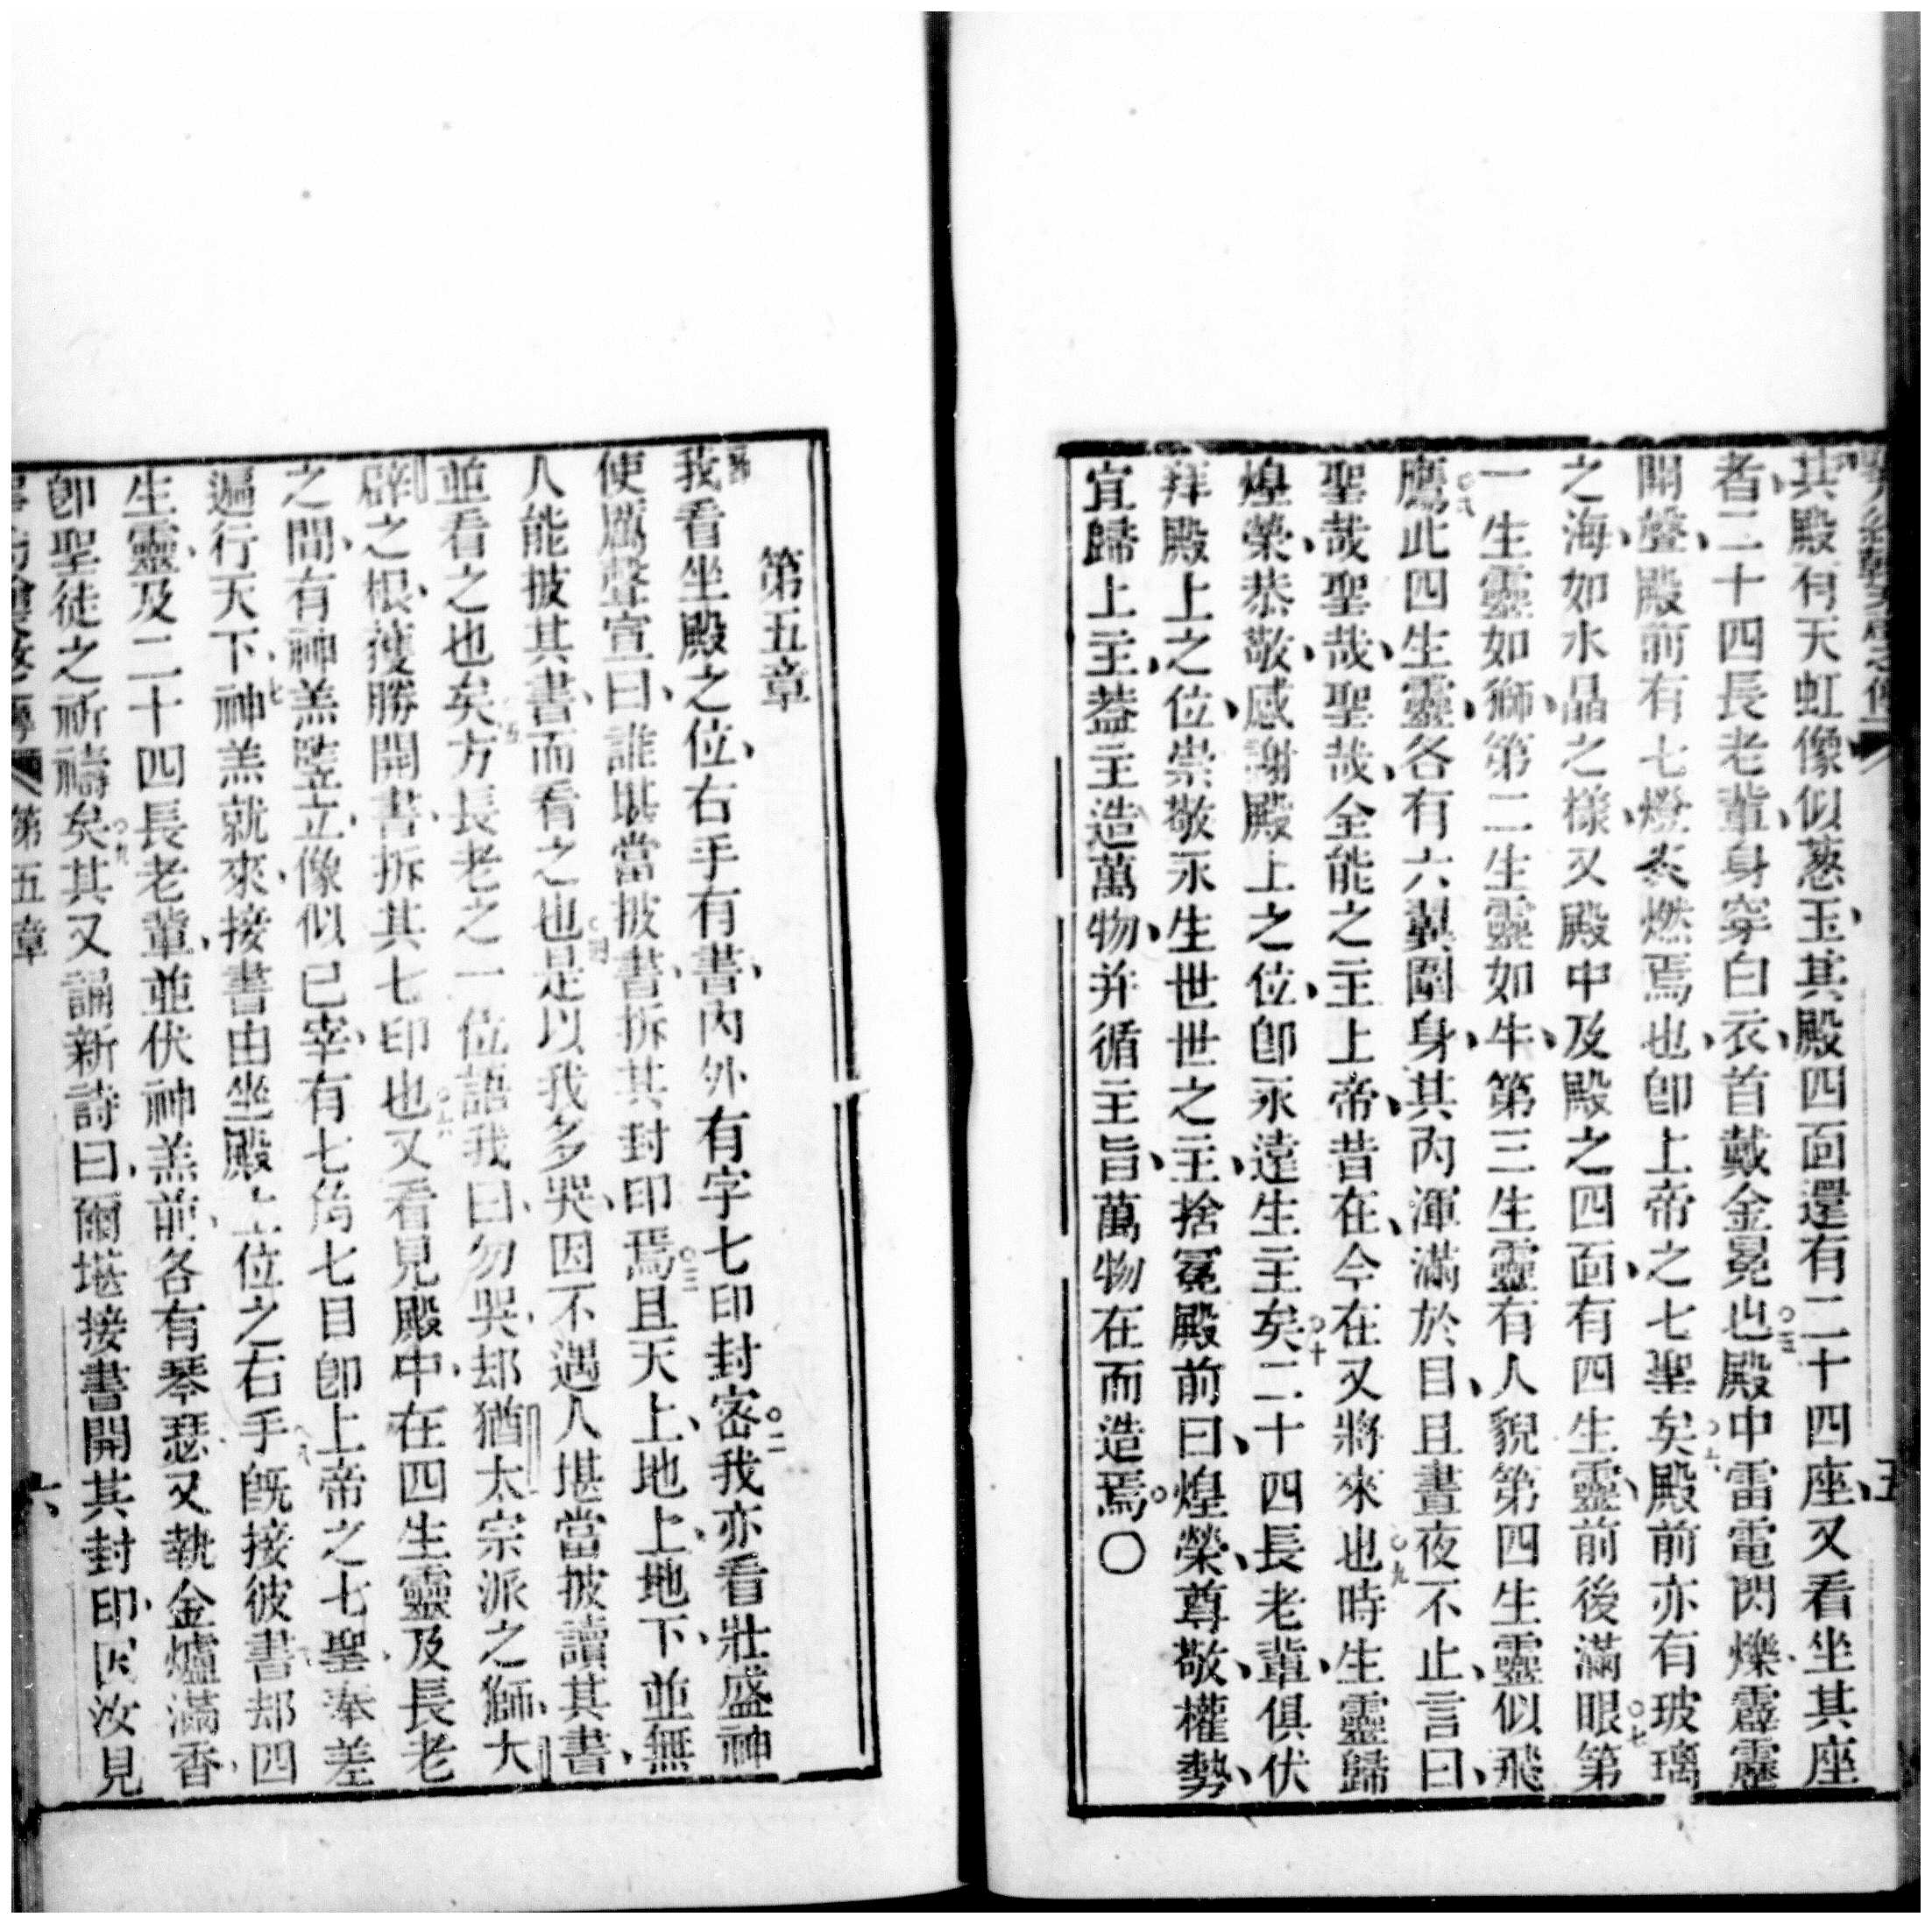 其殿有天虹像似葱玉、其殿四面還有二十四座、又看坐其座
者、二十四長老輩、身穿白衣、首戴金冕也○五殿中雷電閃爍、霹靂
開聲、殿前有七燈炙燃焉也、卽上帝之七聖矣○六殿前亦有玻璃
之海、如水晶之樣、又殿中及殿之四面、有四生靈、前後滿眼○七第
一生靈如獅、第二生靈如牛、第三生靈有人貌第四生靈似飛
鷹○八此四生靈、各有六翼圍身、其內渾滿於目、且晝夜不止、言曰、
聖哉聖哉、聖哉、全能之主上帝、昔在、今在又將來也○九時生靈歸
煌榮、恭敬、感謝殿上之位、卽永遠生主矣○十二十四長老輩、俱伏
拜殿上之位、崇敬永生世世之主、捨冕殿前曰、煌榮、尊敬、權勢、
宜歸上主、蓋主造萬物、并循主旨、萬物在而造焉。○
第五章
我看坐殿之位、右手有書、內外有字七印封密○二我亦看壯盛神
使厲聲宣曰、誰堪當披書、拆其封印焉○三且天上、地上、地下、並無
人能披其書、而看之也○四是以我多哭、因不遇人堪當披讀其書、
並看之也矣○五方長老之一位語我曰、勿哭、却猶太宗派之獅、大
辟之根、獲勝開書、拆其七印也○六又看見殿中、在四生靈及長老
之間、有神羔豎立、像似已宰、有七角七目卽上帝之七聖、奉差
遍行天下、○七神羔就來、接書由坐殿上位之右手○八旣接彼書、却四
生靈、及二十四長老輩、並伏神羔前、各有琴瑟、又執金爐滿香、
卽聖徒之祈禱矣○九其又誦新詩曰、爾堪接書開其封印、因汝見
第五章
六